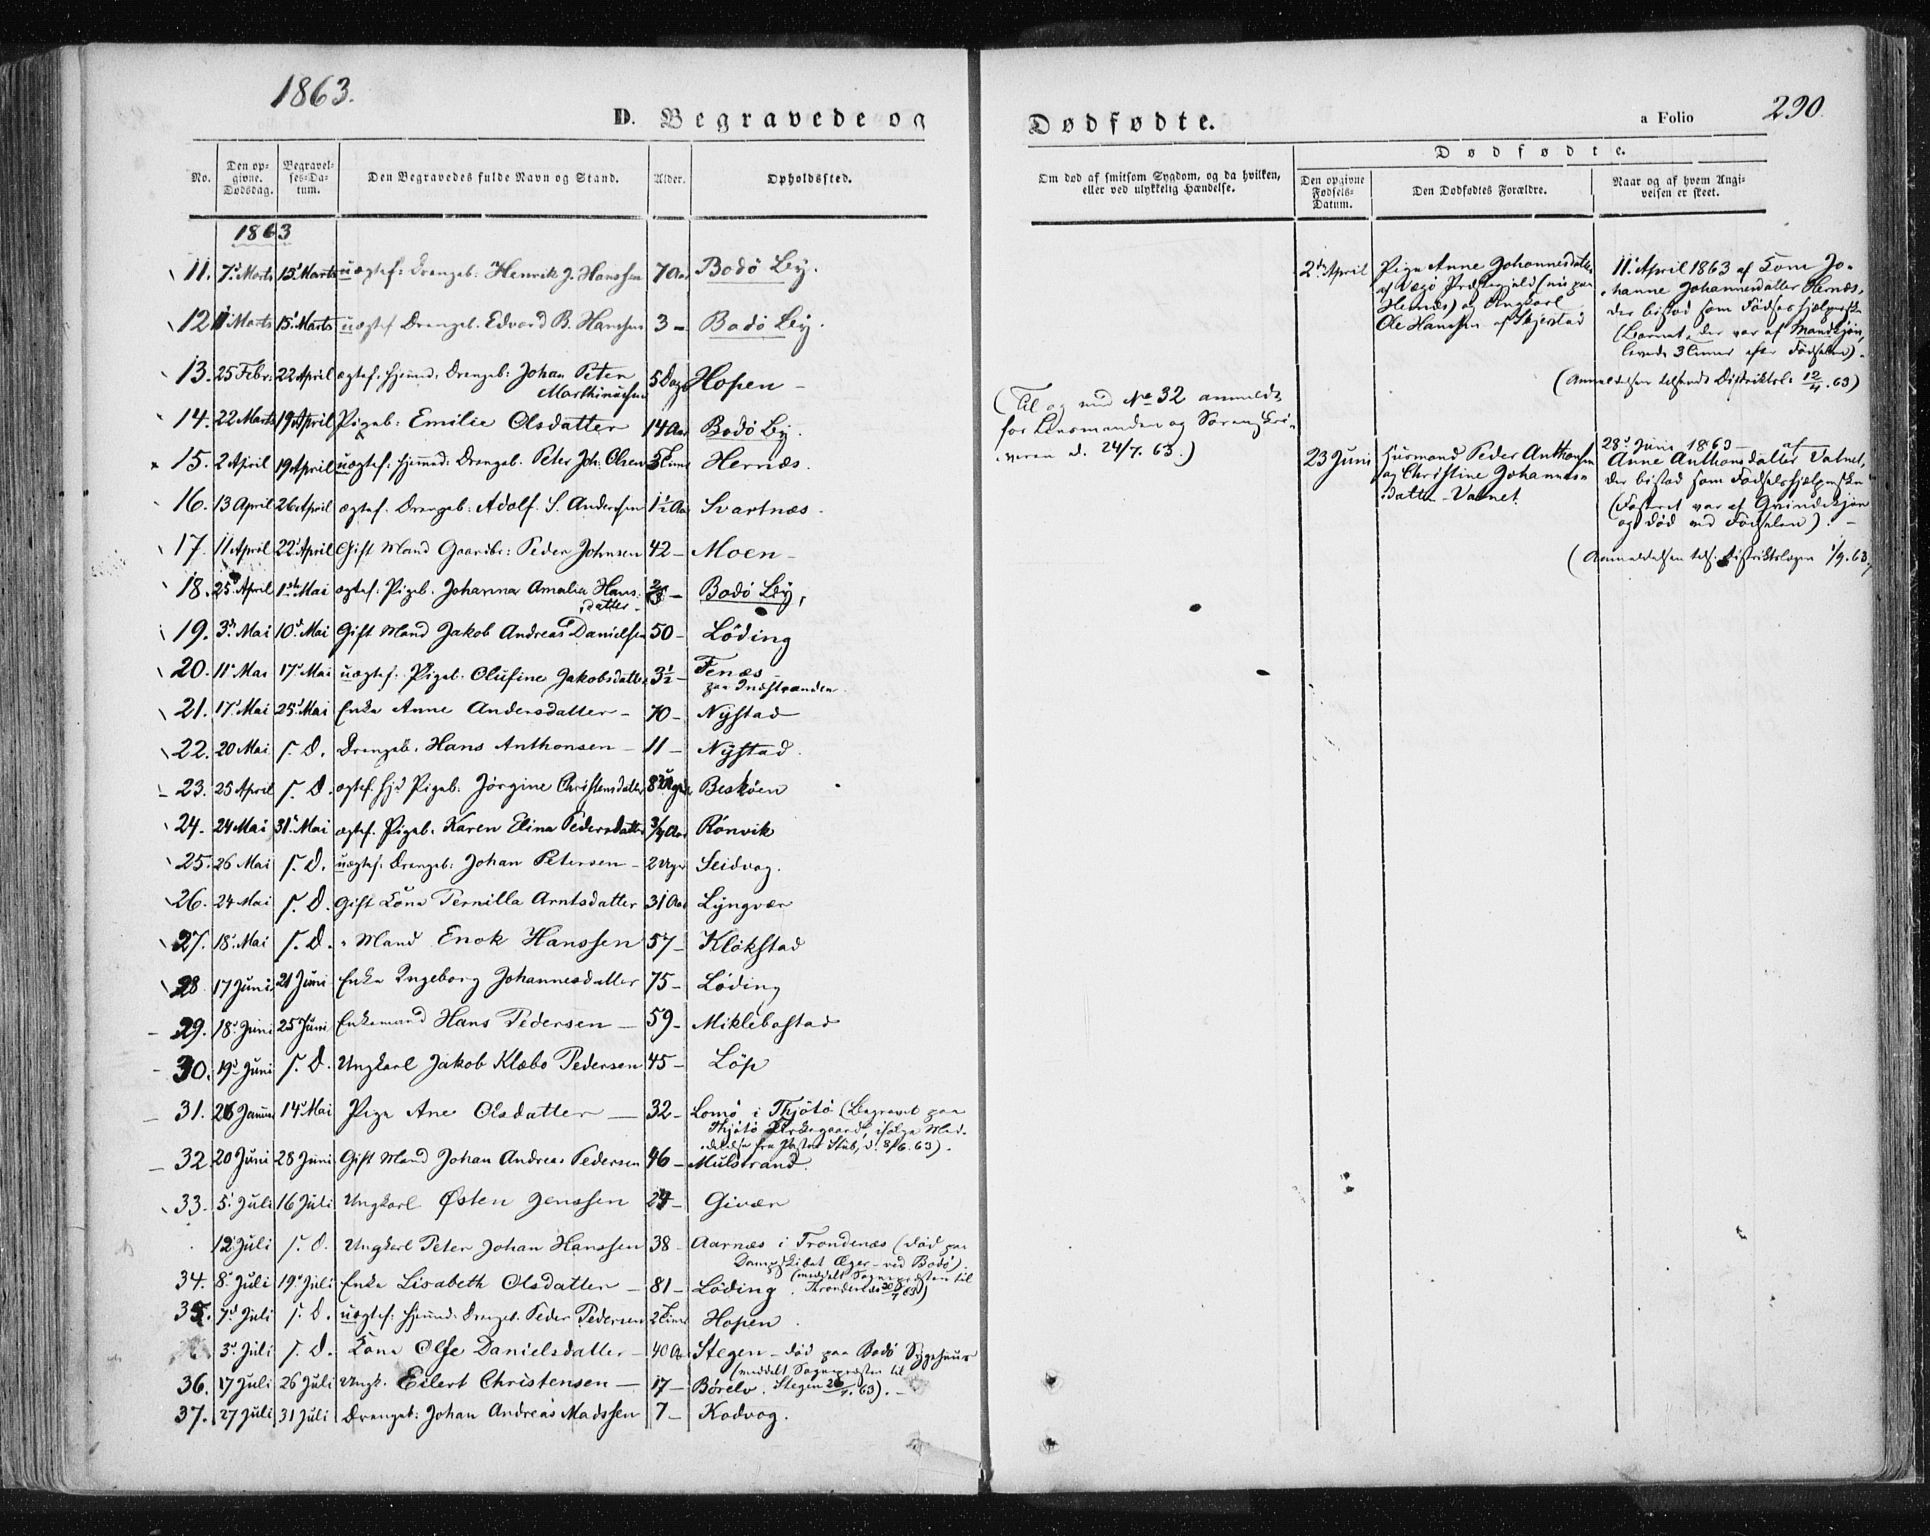 1863.
D. Begravede og
No.
Den op-
givne
Dødsdag.
Begravel-
ses-Da-
tum.
Den Begravedes fulde Navn og Stand.
Alder.
Opholdssted.
1863
11. 7' Marts 15' Marts uægtef: Drengeb: Henrik J. Hanssen 7 Aar Bodö By.
12 11 Marts 15' Marts uægtef Drengeb. Edvard B. Hanssen 3 - Bodö By.
13. 25 Febr. 22 April ægtef. hjemd. Drengeb: Johan Peter
Marthinussen 5 Dage Hopen -
14. 22 Marts 19 April Pigeb: Emilie Olsdatter 14 Aar Bodö By.
15. 2 April 19 April uægtef: hjemd: Drengeb. Peter Joh. Olsen 3 Timer Hernæs.
16. 13 April 26 April ægtef. Drengeb: Adolf S. Anderssen 1½ Aar Svartnæs.
17. 11 April 22' April Gift Mand Gaardbr: Peder Johnsen 42 - Moen -
18. 25' April 1ste Mai ægtef. Pigeb. Johanna Amalia Hans-
datter - Bodö By,
19. 3' Mai 10' Mai Gift Mand Jakob Andreas Danielsen 50 - Löding
20. 11' Mai 17' Mai uægtef. Pigeb. Olufine Jakobsdatter 3½ - Fenæs -
paa Indstranden.
21. 17' Mai 25' Mai Enke Anne Andersdatter - 70 - Nystad
22. 20 Mai s. D. Drengeb. Hans Anthonsen - 11 - Nystad.
23. 25 April s. D. ægtef. hjd Pigeb: Jörgine Christensdatter 8 Uger Besköen
24. 24 Mai 31' Mai ægtef. Pigeb. Karen Elina Pedersdatter ¾ Aar Rönvik
25. 26 Mai s. D. uægtef: Drengeb: Johan Petersen - 2 Uger Seidvog.
26. 24 Mai s. D. Gift Kone Pernilla Arntsdatter 31 Aar Lyngvær
27. 18' Mai s. D. " Mand Enok Hanssen 57 - Klökstad
28 17 Juni 21 Juni Enke Ingeborg Johannesdatter 75 - Löding
29. 18' Juni 25' Juni Enkemand Hans Pedersen - 59 - Miklebostad
30. 19' Juni s. D. Ungkarl Jakob Klæbo Pedersen 45 - Löp
31. 26 Januar 14' Mai Pige Ane Olsdatter - 32 - Lomö i Thjötö (Begravet paa
Thjötö Kirkegaard, ifölge Med-
delelse fra Pastor Stub, d. 8/6. 63).
32. 20 Juni 28 Juni Gift Mand Johan Andreas Pedersen 46 - Mulstrand.
33. 5' Juli 16 Juli Ungkarl Østen Jenssen 24 - Givær
12 Juli s. D. Ungkarl Peter Johan Hanssen 38 - Aarnæs i Trondenæs (död paa
Dampskibet Æger - ved Bodö).
(meddelt Sognepræsten til
34. 8' Juli 19' Juli Enke Lisabeth Olsdatter - 81 - Löding. Throndenæs 63)
35. 7' Juli s. D. uægtef: hjemd: Drengeb. Peder Pedersen 2 Timer Hopen.
3' Juli s. D. Kone Olse Danielsdatter - 40 Aar Stegen - död paa Bodö Sygehuus
(meddelt Sognepræsten til
36. 17 Juli 26 Juli Ungk. Eilert Christensen - 17 - Börelv. Stegen 26/7. 63). -
37. 27 Juli 31 Juli Drengeb: Johan Andreas Madssen 7 - Kodvog.
Dødfødte.
a Folio 290.
Om død af smitsom Sygdom, og da hvilken,
eller ved ulykkelig Hændelse.
Dødfødte.
Den opgivne
Fødsels-
Datum.
Den Dødfødtes Forældre.
Naar og af hvem Angi-
velsen er skeet.
(Til og med No 32 anmeldt
for Lensmanden og Sorenskri-
veren d. 24/7. 63.)
2den April
Pige Anne Johannesdatter
af Vegö Præstegjeld (nu paa
Hernæs) og Ungkarl
Ole Hanssen af Skjerstad
11' April 1863 af Kone Jo-
hanne Johannesdatter Hernæs,
der bistod som Födselshjælperske
(Barnet, der var af Mandkjön,
levede 3 Timer efter Födselen).
(Anmeldelsen tilsendt Distriktsl. 12/4. 63)
23 Juni
Huusmand Peder Anthonsen
og Christine Johannes-
datter - Vatnet
28' Juni 1863 - af
Anne Anthonsdatter Vatnet,
der bistod som Födselshjælperske
(Fosteret var af Qvindekjön
og död ved Födselen). -
(Anmeldelsen tils. Distriktslægen 1/9. 63.)